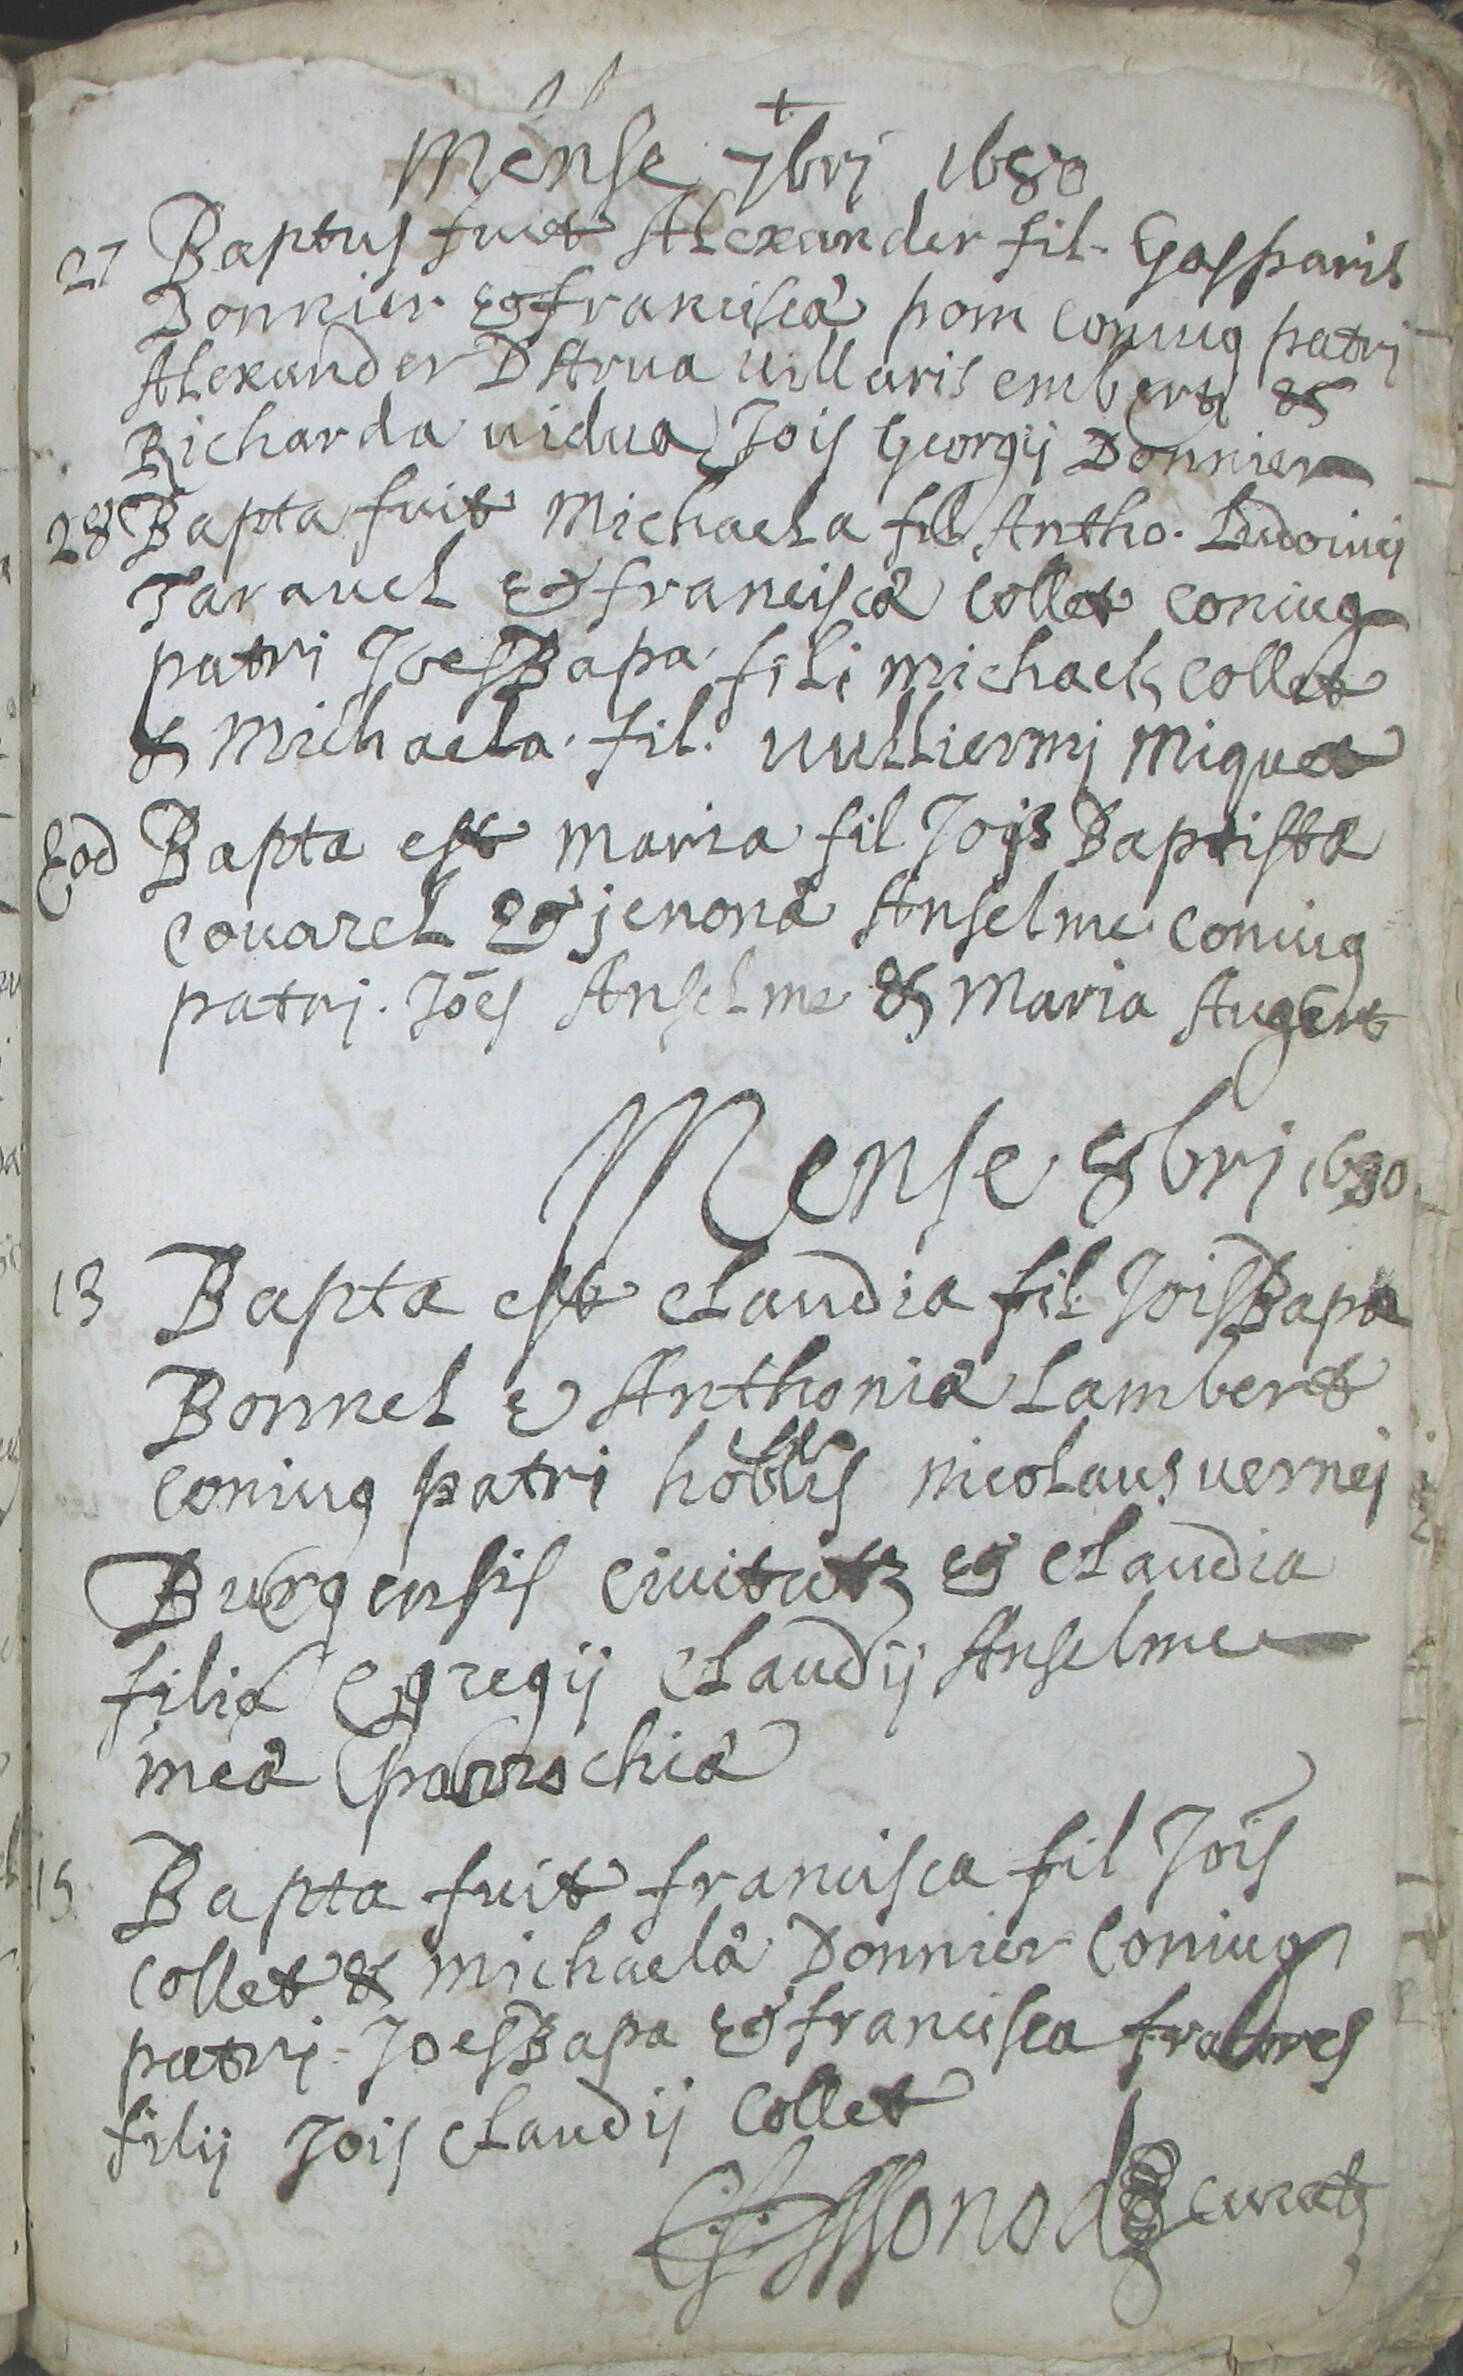 Mense 7bri 1680
27 Baptus fuit Alexander fil. Gasparis
Donnier & francisca pom coniug patri
Alexander D Arua uillaris embert &
Richarda uidua Jois Georgij Donnier
28 Bapta fuit Michaela fil Antho. Ludouici
Tarauel & francisca Collet coniug
patri JoesBapa fili michaelis Collet
& Michaela fil. uulliermi Miquet
Eod Bapta est maria fil Jois Baptista
Couarel & jenona Anselme coniug
patri. Joes Anselme & Maria Augert
Mense 8bri 1680
13 Bapta est Claudia fil. JoisBapa
Bonnel & Anthonia Lambert
coniug patri nicolaus uernej
Burgensis Ciuitatis & Claudia
filia Egregij Claudij Anselme
mea parrochia
15 Bapta fuit francisca fil Jois
Collet & Michaela Donnier Coniug
patri. JoesBapa & francisca fratres
filij Jois Claudij Collet
curatus